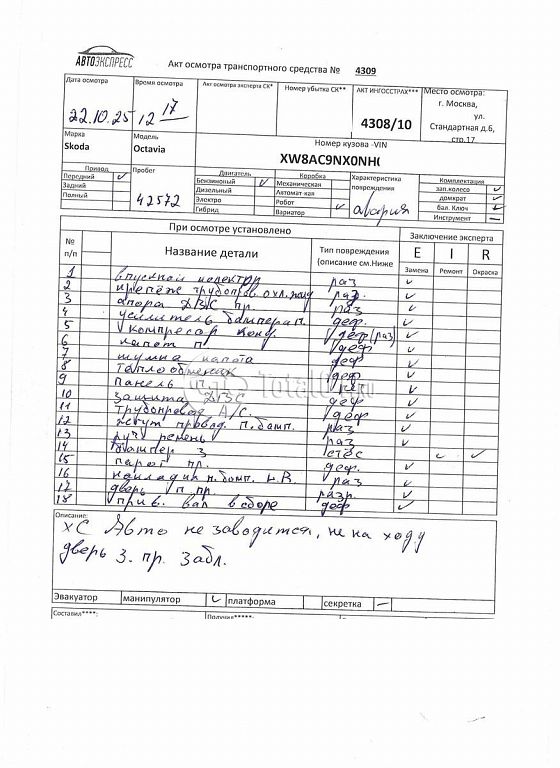 АВТОЭКСПРЕСС
Акт осмотра транспортного средства № 4309
Дата осмотра Время осмотра Акт осмотра эксперта СК* Номер убытка СК** АКТ ИНГОССТРАХ*** Место осмотра:
22.10.25 12 17 4308/10 г. Москва,
ул.
Стандартная д.6,
стр.17
Марка Модель Номер кузова -VIN
Skoda Octavia XW8AC9NX0NH(
Привод Пробег Двигатель Коробка Характеристика повреждения Комплектация
Передний ✓ Бензиновый ✓ Механическая зап.колесо ✓
Задний 42572 Дизельный Автомат-кая авария домкрат ✓
Полный Электро Робот ✓ бал. Ключ ✓
Гибрид Вариатор Инструмент —
При осмотре установлено Заключение эксперта
№ п/п Название детали Тип повреждения (описание см.Ниже E I R
Замена Ремонт Окраска
1 впускной колектор раз ✓
2 крепёж трубопров. охл. жид раз. ✓
3 опора ДВС пр. раз ✓
4 усилитель бампера п. деф. ✓
5 компрессор конд деф (раз) ✓
6 капот п деф ✓
7 шумка капота деф ✓
8 теплообменик деф. ✓
9 панель п. ✓
10 защита ДВС деф ✓
11 трубопровод А/С. деф ✓
12 жгут провод. п. бамп. раз ✓
13 руч ремень раз ✓
14 бампер з стёс ✓ ✓
15 порог пр. деф. ✓
16 накладка п. бамп. н. R. раз ✓
17 дверь п пр. разр. ✓
18 прив. вал в сборе деф ✓
TotalL
Описание:
ХС Авто не заводится, не на ходу
дверь з. пр. забл.
Эвакуатор манипулятор ✓ платформа секретка —
Составил****: